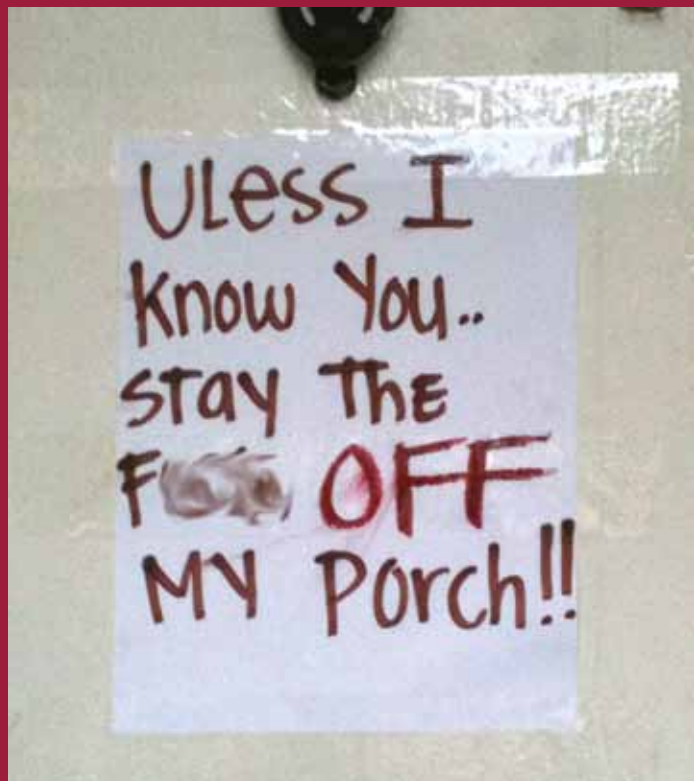 ULess I
know You..
STay The
F OFF
MY Porch!!